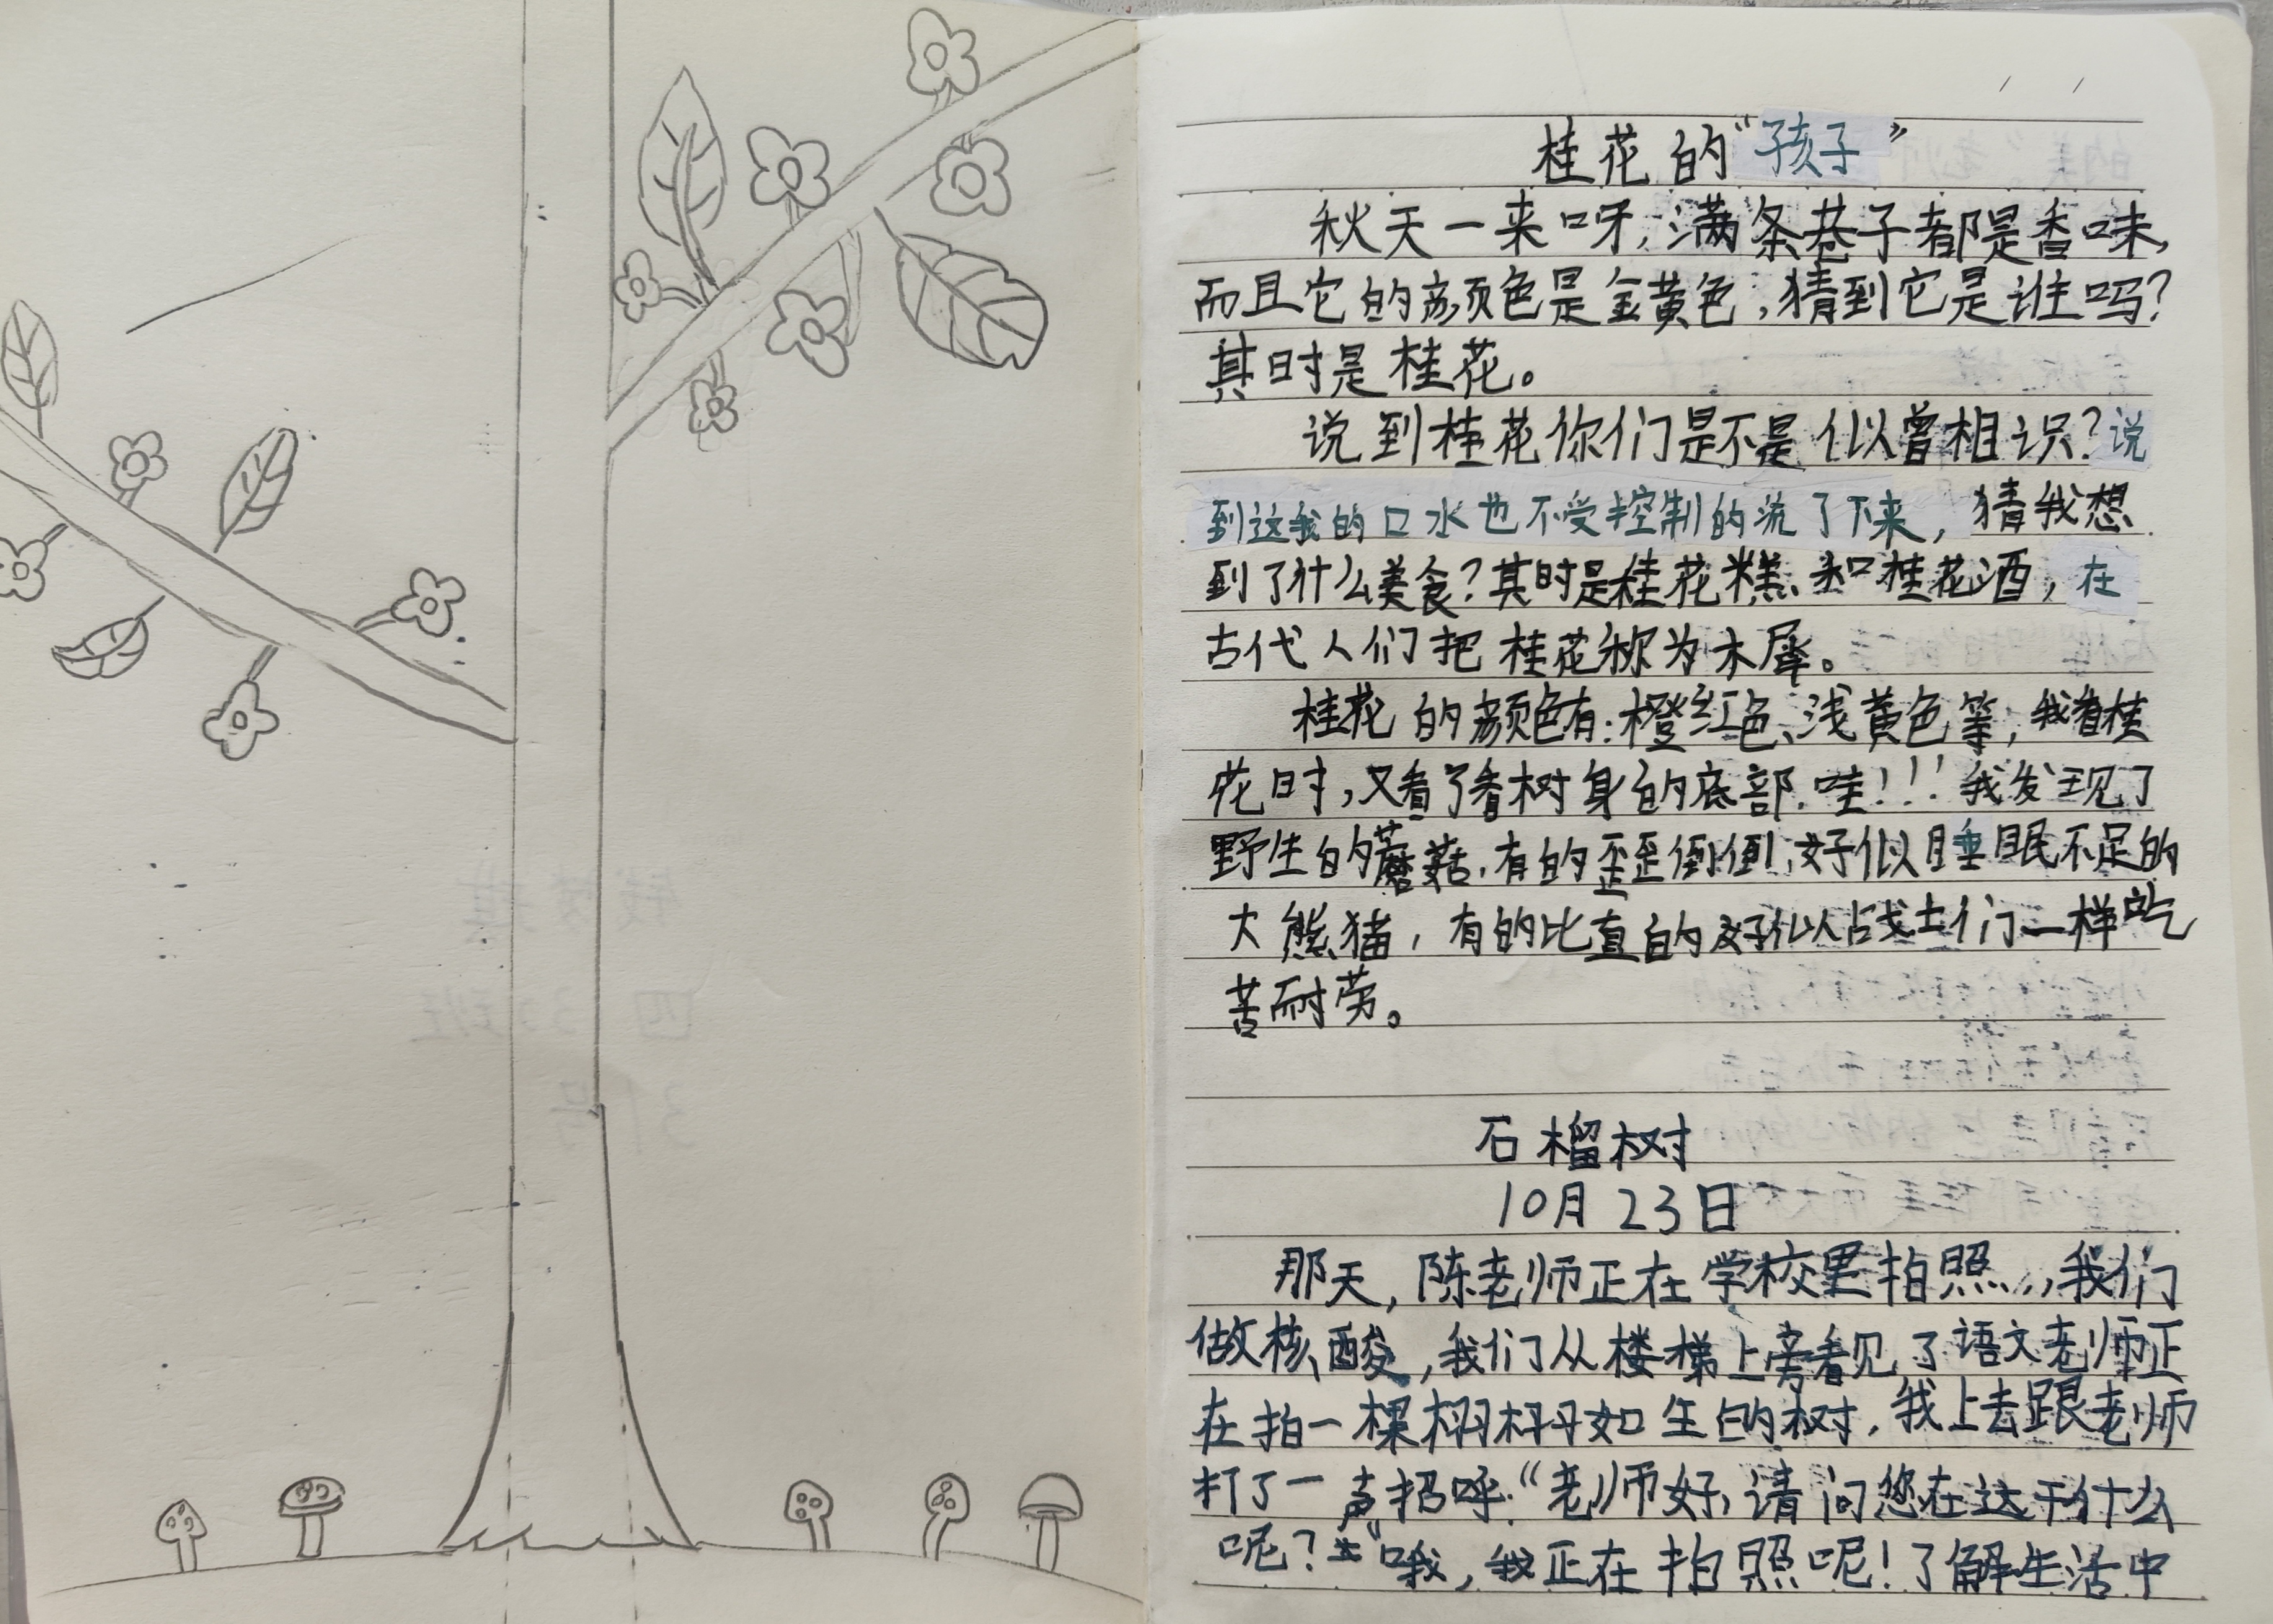 桂花的“孩子”
秋天一来呀,满条巷子都是香味,
而且它的颜色是金黄色,猜到它是谁吗?
其时是桂花。
说到桂花你们是不是似曾相识?说
到这我的口水也不受控制的流了下来,猜我想
到了什么美食?其时是桂花糕、和桂花酒,在
古代人们把桂花称为木犀。
桂花的颜色有:橙红色、浅黄色等,我看桂
花时,又看了看树身的底部.哇!!!我发现了
野生的蘑菇,有的歪歪倒倒,好似睡眠不足的
大熊猫,有的比直的好似战士们一样吃
苦耐劳。
石榴树
10月23日
那天,陈老师正在学校里拍照,,,我们
做核酸,我们从楼梯上旁看见了语文老师正
在拍一棵栩栩如生的树,我上去跟老师
打了一声招呼:“老师好,请问您在这干什么
呢?”“哦,我正在拍照呢!了解生活中
四(3)班
31号